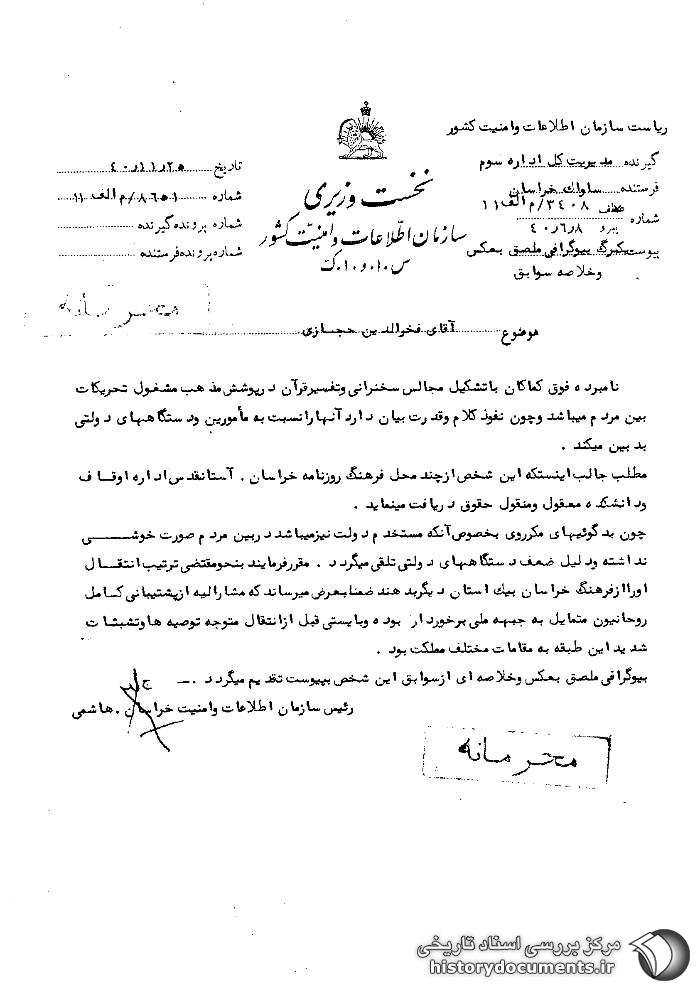 ریاست سازمان اطلاعات وامنیت کشور
گیرنده مدیریت کل اداره سوم
فرستنده ساواک خراسان
شماره عطف ۳۴۰۸/م الف ۱۱
۴۰٫۶٫۸
پیوست یکبرگ بیوگرافی ملصق بعکس
وخلاصه سوابق
نخست وزیری
سازمان اطلاعات و امنیت کشور
س.ا.و.ا.ک
تاریخ ۴۰٫۱۱٫۲۵
شماره ۸۶۵۱/م الف ۱۱
شماره پرونده گیرنده
شماره پرونده فرستنده
محرمانه
موضوع آقای فخرالدین حجازی
نامبرده فوق کماکان با تشکیل مجالس سخنرانی وتفسیر قرآن درپوشش مذهب مشغول تحریکات
بین مردم میباشد وچون نفوذ کلام وقدرت بیان دارد آنهارا نسبت به مأمورین ودستگاههای دولتی
بدبین میکند .
مطلب جالب اینستکه این شخص ازچند محل فرهنگ روزنامه خراسان . آستانقدس اداره اوقاف
ودانشکده معقول ومنقول حقوق دریافت مینماید .
چون بدگوئیهای مکرروی بخصوص آنکه مستخدم دولت نیزمیباشد دربین مردم صورت خوشی
نداشته ودلیل ضعف دستگاههای دولتی تلقی میگردد . مقررفرمایند بنحومقتضی ترتیب انتقال
اورا ازفرهنگ خراسان بیک استان دیگربدهند ضمنا بعرض میرساند که مشارالیه ازپشتیبانی کامل
روحانیون متمایل به جبهه ملی برخوردار بوده وبایستی قبل ازانتقال متوجه توصیه ها وتشبثات
شدید این طبقه به مقامات مختلف مملکت بود .
بیوگرافی ملصق بعکس وخلاصه ای ازسوابق این شخص بپیوست تقدیم میگردد .ــ
رئیس سازمان اطلاعات وامنیت خراسان . هاشمی
محرمانه
مرکز بررسی اسناد تاریخی
historydocuments.ir